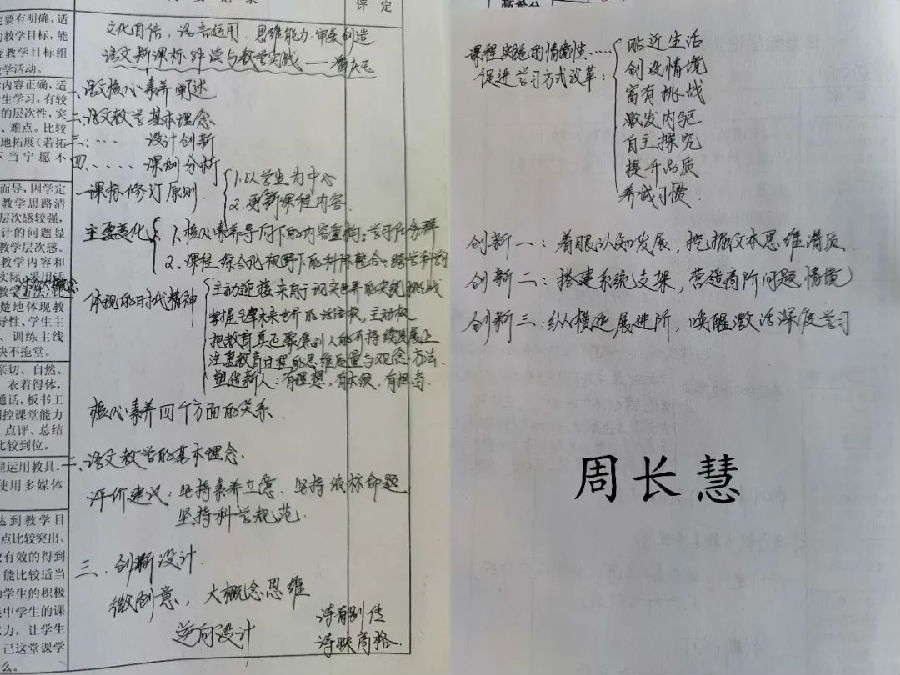 评 定
要有明确，适
教学目标，能
教学目标组
学活动。
内容正确，适
生学习，有较
的层次性，突
、难点。比较
地拓展（若拓
不当宁愿不
而导，因学定
教学思路清
层次感较强，
计的问题显
教学层次感。
教学内容和
楚地体现教
导性，学生主
、训练主线
决不沲堂。
亲切、自然、
衣着得体，
通话，板书工
调控课堂能力
点评、总结
比较到位。
运用教具，
使用多媒体
达到教学目
点比较突出、
有效的得到
能比较适当
学生的积极
中学生的课
力，让学生
己这堂课学
么。
文化自信，语言运用，思维能力，审美创造
语文新课标解读与教学实践
一、语文核心素养阐述
二、语文教学基本理念
三、…… 设计创新
四、…… 课例分析
课标修订原则
1. 以学生为中心
2. 更新课程内容
主要变化
1. 核心素养导向下的内容重构：学习任务群
2. 课程综合化视野下的科际整合：跨学科
大概念
体现的时代精神
主动迎接来自于现实世界的实践挑战
掌握 未来世界的话语权，主动权
把教育真正聚焦到人的可持续发展上
注重教育过程的思维质量与观念、方法
塑造新人：有理想，有本领，有担当
核心素养四个方面的关系
二、语文教学的基本理念
评价建议：坚持素养立意 坚持依标命题
坚持科学规范
三、创新设计
微创意，大概念思维
逆向设计
课程实施的情境性……
促进学习方式改革：
贴近生活
创设情境
富有挑战
激发内驱
自主探究
提升品质
养成习惯
创新一：着眼认知发展，挖掘文本思维潜质
创新二：搭建系统支架，营造高阶问题情境
创新三：纵横延展进阶，唤醒激活深度学习
周长慧